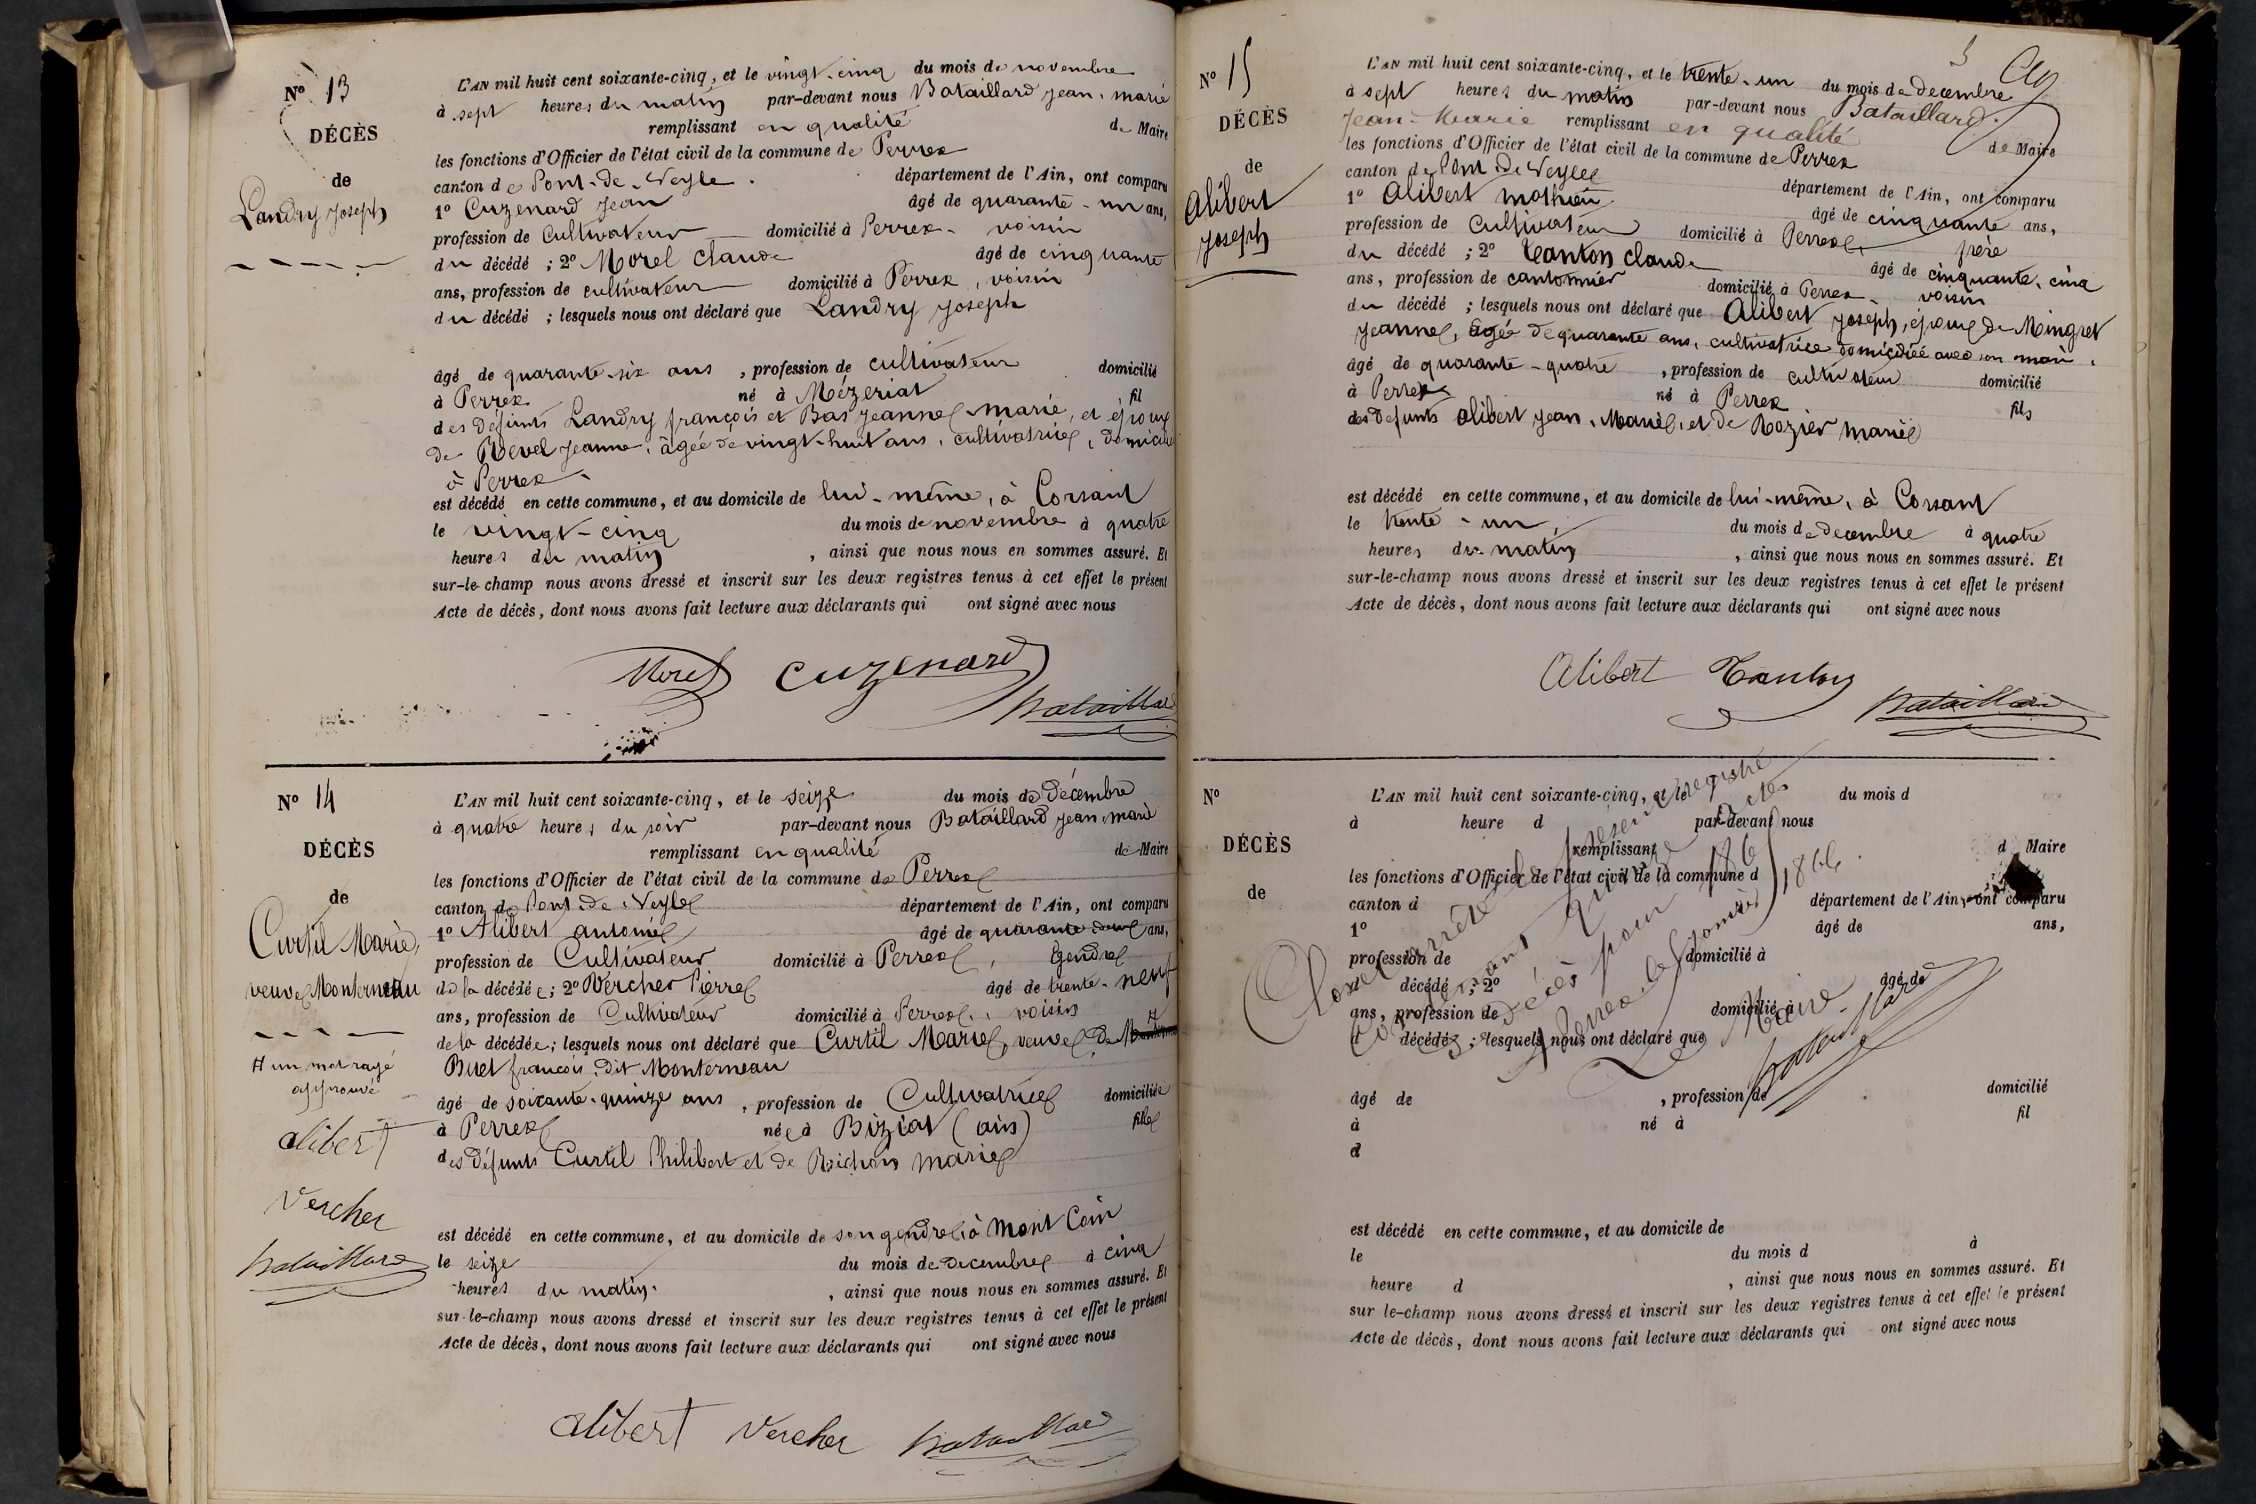 Nº 13
DÉCÈS
de
Landry Joseph
L'AN mil huit cent soixante-cinq, et le vingt-cinq du mois de novembre
à sept heures du matin par-devant nous Bataillard Jean-Marie
remplissant en qualité de Maire
les fonctions d'Officier de l'état civil de la commune de Perrex
canton de Pont-de-Veyle département de l'Ain, ont comparu
1º Cuzenard Jean âgé de quarante-un ans,
profession de Cultivateur domicilié à Perrex voisin
du décédé ; 2º Morel Claude âgé de cinquante
ans, profession de cultivateur domicilié à Perrex, voisin
du décédé ; lesquels nous ont déclaré que Landry Joseph
âgé de quarante-six ans, profession de cultivateur domicilié
à Perrex né à Mézeriat fil
des défunts Landry françois et Bas Jeanne-Marie, et époux
de Revel Jeanne, âgée de vingt-huit ans, cultivatrice, domiciliée
à Perrex
est décédé en cette commune, et au domicile de lui-même, à Corsant
le vingt-cinq du mois de novembre à quatre
heures du matin, ainsi que nous nous en sommes assuré. Et
sur-le-champ nous avons dressé et inscrit sur les deux registres tenus à cet effet le présent
Acte de décès, dont nous avons fait lecture aux déclarants qui ont signé avec nous
Morel Cuzenard
Bataillard
Nº 14
DÉCÈS
de
Curtil Marie,
veuve Monterneau
un mot rayé
approuvé
alibert
Vercher
Bataillard
L'AN mil huit cent soixante-cinq, et le seize du mois de Décembre
à quatre heures du soir par-devant nous Bataillard Jean-Marie
remplissant en qualité de Maire
les fonctions d'Officier de l'état civil de la commune de Perrex
canton de Pont-de-Veyle département de l'Ain, ont comparu
1º Alibert antoine âgé de quarante-deux ans,
profession de Cultivateur domicilié à Perrex, gendre
de la décédée ; 2º Vercher Pierre âgé de trente-neuf
ans, profession de Cultivateur domicilié à Perrex, voisin
de la décédée ; lesquels nous ont déclaré que Curtil Marie, veuve de
Buet françois, dit Monterneau
âgé de soixante-quinze ans, profession de Cultivatrice domiciliée
à Perrex née à Biziat (ain) fille
des défunts Curtil Philibert et de Bichon Marie
est décédé en cette commune, et au domicile de son gendre, à Mont Coin
le seize du mois de decembre à cinq
heures du matin, ainsi que nous nous en sommes assuré. Et
sur-le-champ nous avons dressé et inscrit sur les deux registres tenus à cet effet le présent
Acte de décès, dont nous avons fait lecture aux déclarants qui ont signé avec nous
alibert Vercher Bataillard
Nº 15
DÉCÈS
de
Alibert
Joseph
L'AN mil huit cent soixante-cinq, et le trente-un du mois de decembre
à sept heures du matin par-devant nous Bataillard
Jean-Marie remplissant en qualité de Maire
les fonctions d'Officier de l'état civil de la commune de Perrex
canton de Pont-de-Veyle département de l'Ain, ont comparu
1º Alibert Mathieu âgé de cinquante ans,
profession de Cultivateur domicilié à Perrex, frère
du décédé ; 2º Tanton Claude âgé de cinquante-cinq
ans, profession de cantonnier domicilié à Perrex, voisin
du décédé ; lesquels nous ont déclaré que Alibert Joseph, époux de Mingret
Jeanne, âgée de quarante ans, cultivatrice domiciliée avec son mari.
âgé de quarante-quatre, profession de cultivateur domicilié
à Perrex né à Perrex fils
des défunts alibert Jean-Marie, et de Rozier Marie
est décédé en cette commune, et au domicile de lui-même, à Corsant
le trente-un du mois de decembre à quatre
heures du matin, ainsi que nous nous en sommes assuré. Et
sur-le-champ nous avons dressé et inscrit sur les deux registres tenus à cet effet le présent
Acte de décès, dont nous avons fait lecture aux déclarants qui ont signé avec nous
Alibert Tanton
Bataillard
Nº
DÉCÈS
de
L'AN mil huit cent soixante-cinq, et le du mois d
à heure d par-devant nous
remplissant d Maire
les fonctions d'Officier de l'état civil de la commune d
canton d département de l'Ain, ont comparu
1º âgé de ans,
profession de domicilié à
d décédé ; 2º âgé de
ans, profession de domicilié à
d décédé ; lesquels nous ont déclaré que
âgé de , profession de domicilié
à né à fil
d
est décédé en cette commune, et au domicile de
le du mois d à
heure d , ainsi que nous nous en sommes assuré. Et
sur le-champ nous avons dressé et inscrit sur les deux registres tenus à cet effet le présent
Acte de décès, dont nous avons fait lecture aux déclarants qui ont signé avec nous
Clos et arrêté le présent registre
contenant quinze actes
de décès pour 186
à Perrex le janvier 1866
Le Maire
Bataillard